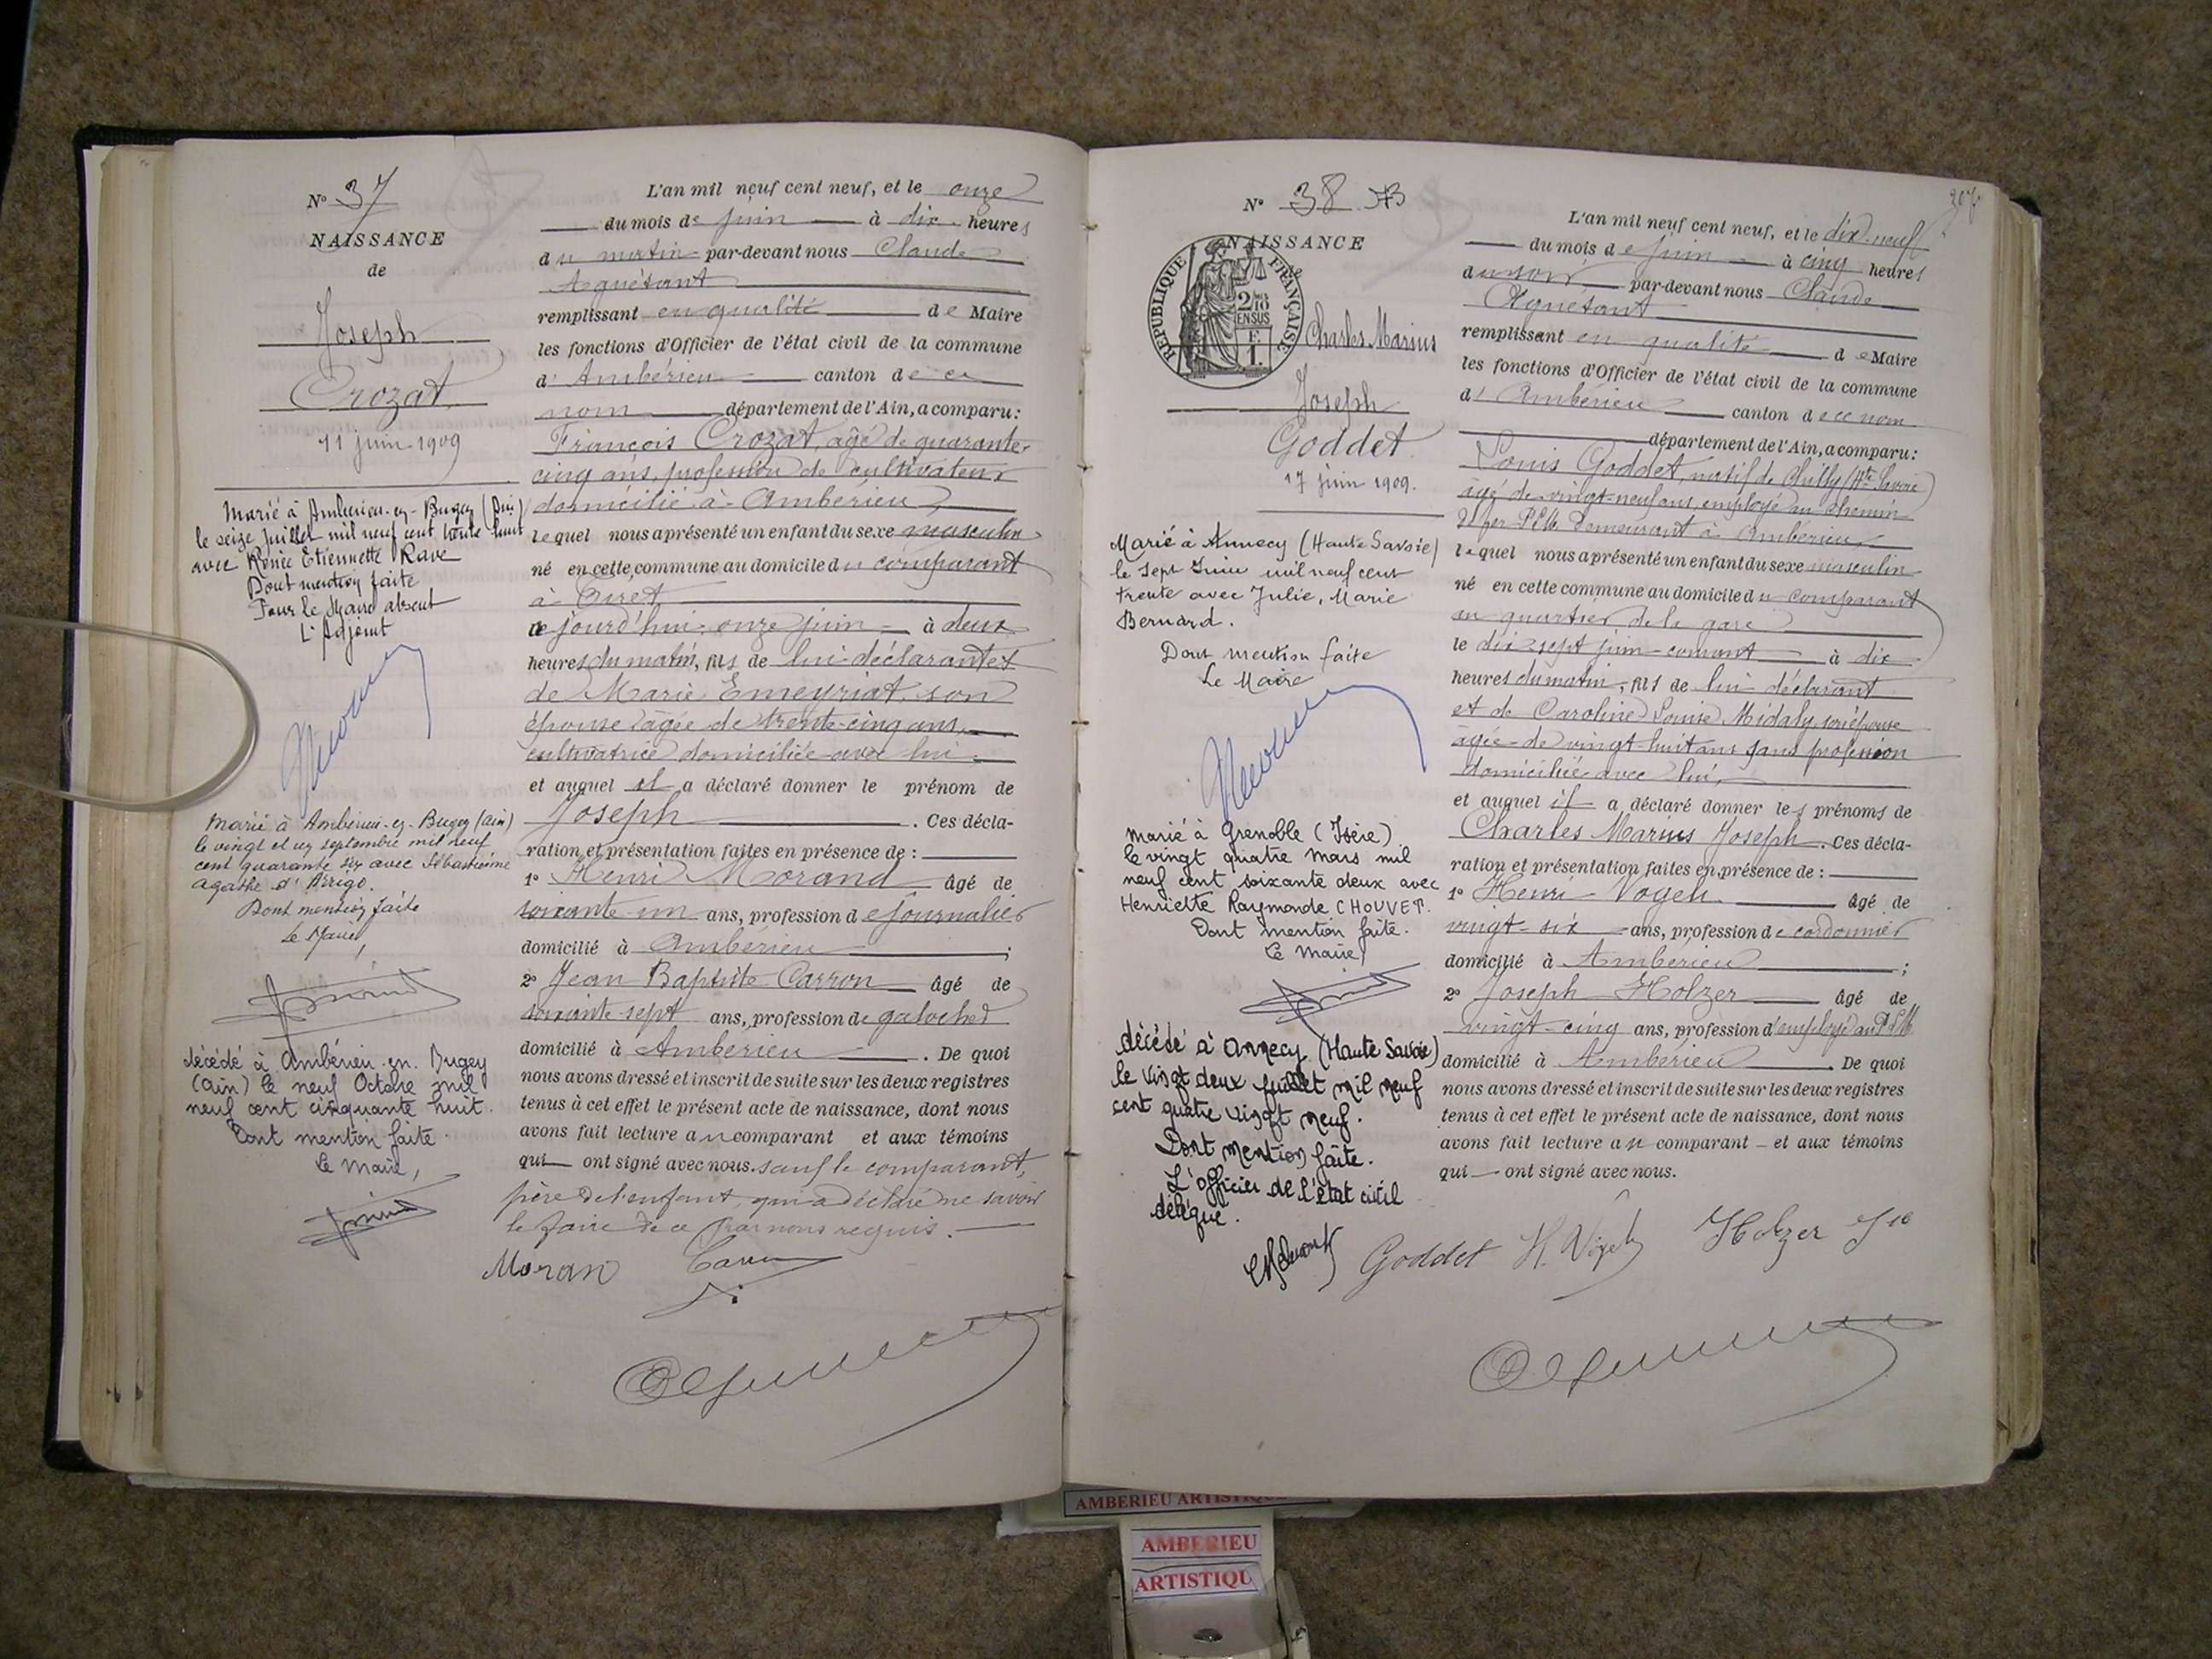 N° 37
NAISSANCE
de
Joseph
Crozat
11 juin 1909
Marié à Ambérieu-en-Bugey (Ain)
le seize juillet mil neuf cent trente huit
avec Renée Etiennette Rave
Dont mention faite
Pour le Maire absent
L'Adjoint
Marié à Ambérieu-en-Bugey (Ain)
le vingt et un septembre mil neuf
cent quarante six avec Sébastienne
Agathe d'Arrigo.
Dont mention faite
Le Maire,
décédé à Ambérieu-en-Bugey
(Ain) le neuf Octobre mil
neuf cent cinquante huit.
Dont mention faite.
Le Maire,
L'an mil neuf cent neuf, et le onze
du mois de juin à dix heures
du matin par-devant nous Claude
Aguétant
remplissant en qualité de Maire
les fonctions d'Officier de l'état civil de la commune
d'Ambérieu canton de ce
nom département de l'Ain, a comparu:
François Crozat, âgé de quarante-
cinq ans, profession de cultivateur
domicilié à Ambérieu
lequel nous a présenté un enfant du sexe masculin
né en cette commune au domicile du comparant
à
ce jourd'hui onze juin à deux
heures du matin, fils de lui déclarant et
de Marie Emeyriat son
épouse âgée de trente-cinq ans,
cultivatrice domiciliée avec lui
et auquel il a déclaré donner le prénom de
Joseph . Ces décla-
ration et présentation faites en présence de :
1° Henri Morand âgé de
soixante-un ans, profession de journalier
domicilié à Ambérieu ;
2° Jean Baptiste Carron âgé de
soixante-sept ans, profession de galocher
domicilié à Ambérieu . De quoi
nous avons dressé et inscrit de suite sur les deux registres
tenus à cet effet le présent acte de naissance, dont nous
avons fait lecture au comparant et aux témoins
qui ont signé avec nous sauf le comparant,
père de l'enfant, qui a déclaré ne savoir
le faire de ce par nous requis.
Moran
N° 38
207
NAISSANCE
REPUBLIQUE FRANÇAISE
Charles Marius
Joseph
Goddet
17 juin 1909.
Marié à Annecy (Haute Savoie)
le Sept Juin mil neuf cent
trente avec Julie, Marie
Bernard.
Dont mention faite
Le Maire
Marié à Grenoble (Isère)
le vingt quatre mars mil
neuf cent soixante deux avec
Henriette Raymonde CHOUVET.
Dont mention faite.
Le Maire,
décédé à Annecy (Haute Savoie)
le vingt deux juillet mil neuf
cent quatre vingt neuf.
Dont mention faite.
L'officier de l'état civil
délégué.
L'an mil neuf cent neuf, et le dix-neuf
du mois de juin à cinq heures
du soir par-devant nous Claude
Aguétant
remplissant en qualité de Maire
les fonctions d'Officier de l'état civil de la commune
d'Ambérieu canton de ce nom
département de l'Ain, a comparu:
Louis Goddet, natif de Chilly (Hte Savoie)
âgé de vingt-neuf ans, employé au chemin
de fer PLM demeurant à Ambérieu
lequel nous a présenté un enfant du sexe masculin
né en cette commune au domicile du comparant
au quartier de la gare
le dix sept juin courant à dix
heures du matin, fils de lui déclarant
et de Caroline Louise Midaly, son épouse
âgée de vingt-huit ans sans profession
domiciliée avec lui,
et auquel il a déclaré donner les prénoms de
Charles Marius Joseph . Ces décla-
ration et présentation faites en présence de :
1° Henri Vogeh âgé de
vingt-six ans, profession de cordonnier
domicilié à Ambérieu ;
2° Joseph Holzer âgé de
vingt-cinq ans, profession d'employé au PLM
domicilié à Ambérieu . De quoi
nous avons dressé et inscrit de suite sur les deux registres
tenus à cet effet le présent acte de naissance, dont nous
avons fait lecture au comparant et aux témoins
qui ont signé avec nous.
Goddet Holzer
AMBERIEU ARTISTIQUE
AMBERIEU
ARTISTIQU